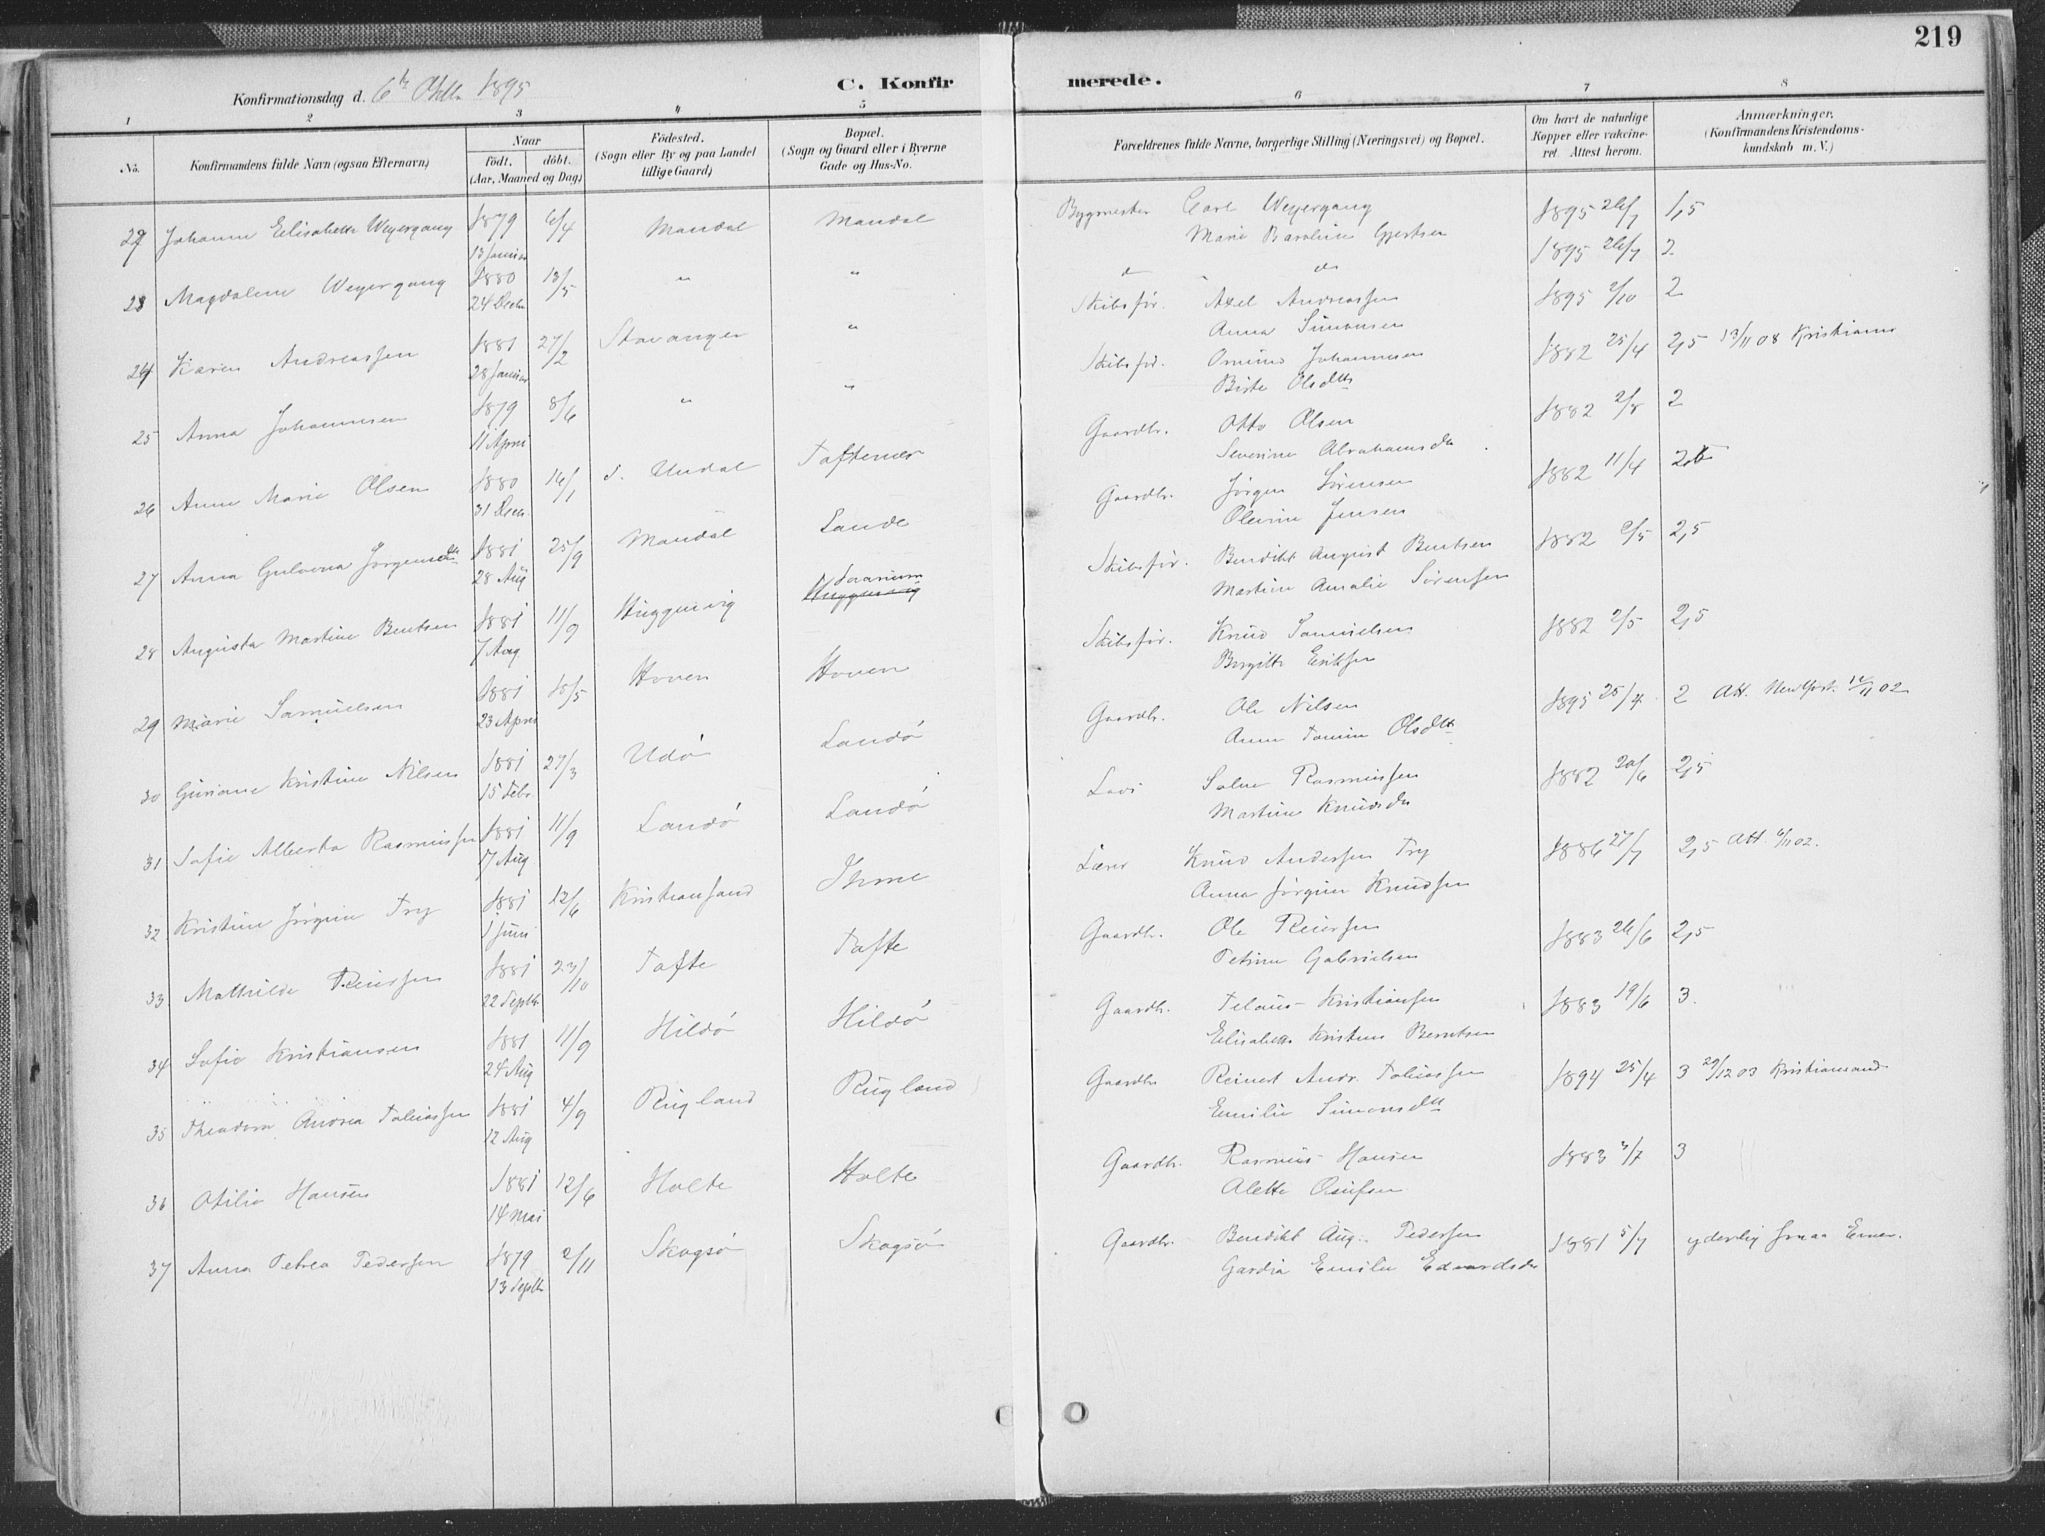 219
Konfirmationsdag d. 6te Oktbr 1895
C. Konfirmerede.
1 2 3 4 5 6 7 8
No.
Konfirmandens fulde Navn (ogsaa Efternavn)
Naar
født. døbt.
(Aar, Maaned og Dag)
Fødested.
(Sogn eller By og paa Landet tillige Gaard)
Bopæl.
(Sogn og Gaard eller i Byerne Gade og Hus-No.
Forældrenes fulde Navne, borgerlige Stilling (Næringsvei) og Bopæl.
Om havt de naturlige Kopper eller vaccineret. Attest herom.
Anmærkninger.
(Konfirmandens Kristendomskundskab m. V.)
Johanne Elisabeth Weyergang 1879 13 Januar 6/4 Mandal Mandal Bygmester Carl Weyergang 1895 26/7 1,5
Marie Karoline Gjertsen
23 Magdalene Weyergang 1880 24 Decbr 13/5 " " do " do 1895 26/7 2
24 Karen Andreassen 1881 28 Januar 27/2 Stavanger " Skibsfør. Axel Andreassen 1895 2/10 2
Anna Simonsen
25 Anna Johannesen 1879 11 April 8/6 " " Skibsfør. Omund Johannesen 1882 25/4 2,5 13/11 08 Kristiania
Birte Olsdtr
26 Anne Marie Olsen 1880 31 Decbr. 16/1 S. Undal Toftenes Gaardbr. Otto Olsen 1882 2/8 2
Severine Abrahamsdtr
27 Anna Gulovna Jørgensdtr 1881 28 Aug 25/9 Mandal Lande Gaardbr. Jørgen Sørensen 1882 11/4 2,5
Olevine Jensen
28 Augusta Martine Bentsen 1881 7 Aug 11/9 Skibsfør. Bendikt August Bentsen 1882 2/5 2,5
Martine Amalie Sørensen
29 Marie Samuelsen 1881 23 April 15/5 Hoven Hoven Skibsfør. Knud Samuelsen 1882 2/5 2,5
Birgitte Eriksen
30 Guriane Kristine Nilsen 1881 15 Febr 27/3 Udø Landø Gaardbr. Ole Nilsen 1895 25/4 2 Att. New York 12/11 02
Anne Tomine Olsdtr
31 Sofie Alberta Rasmussen 1881 17 Aug 11/9 Landø Landø Lods Salve Rasmussen 1882 20/6 2,5
Martine Knudsdtr
32 Kristine Jørgine Try 1881 1 Juni 12/6 Kristiansand Ihme Lærer Knud Andersen Try 1886 27/7 2,5 Att. 6/11 02.
Anna Jørgine Knudsen
33 Mathilde Reiersen 1881 22 Septbr. 23/10 Tofte Tofte Gaardbr. Ole Reiersen 1883 26/6 2,5
Petrine Gabrielsen
34 Sofie Kristiansen 1881 24 Aug 11/9 Hildø Hildø Gaardbr. Kristiansen 1883 19/6 3.
Elisabeth Kristine Berntsen
35 Theodora Andrea Tobiassen 1881 12 Aug 4/9 Rugland Rugland Gaardbr Reinert Andr. Tobiassen 1894 25/4 3 29/12 03 Kristiansand
Emilie Simonsdtr
36 Otilie Hansen 1881 14 Mai 12/6 Holte Holte Gaardbr. Rasmus Hansen 1883 3/7 3
Alette Osufsen
37 Anna Petrea Pedersen 1879 13 Septbr 2/11 Skogsø Skogsø Gaardbr. Bendikt Aug. Pedersen 1881 5/7 yderlig smaa Evner.
Emilie Edvardsdtr